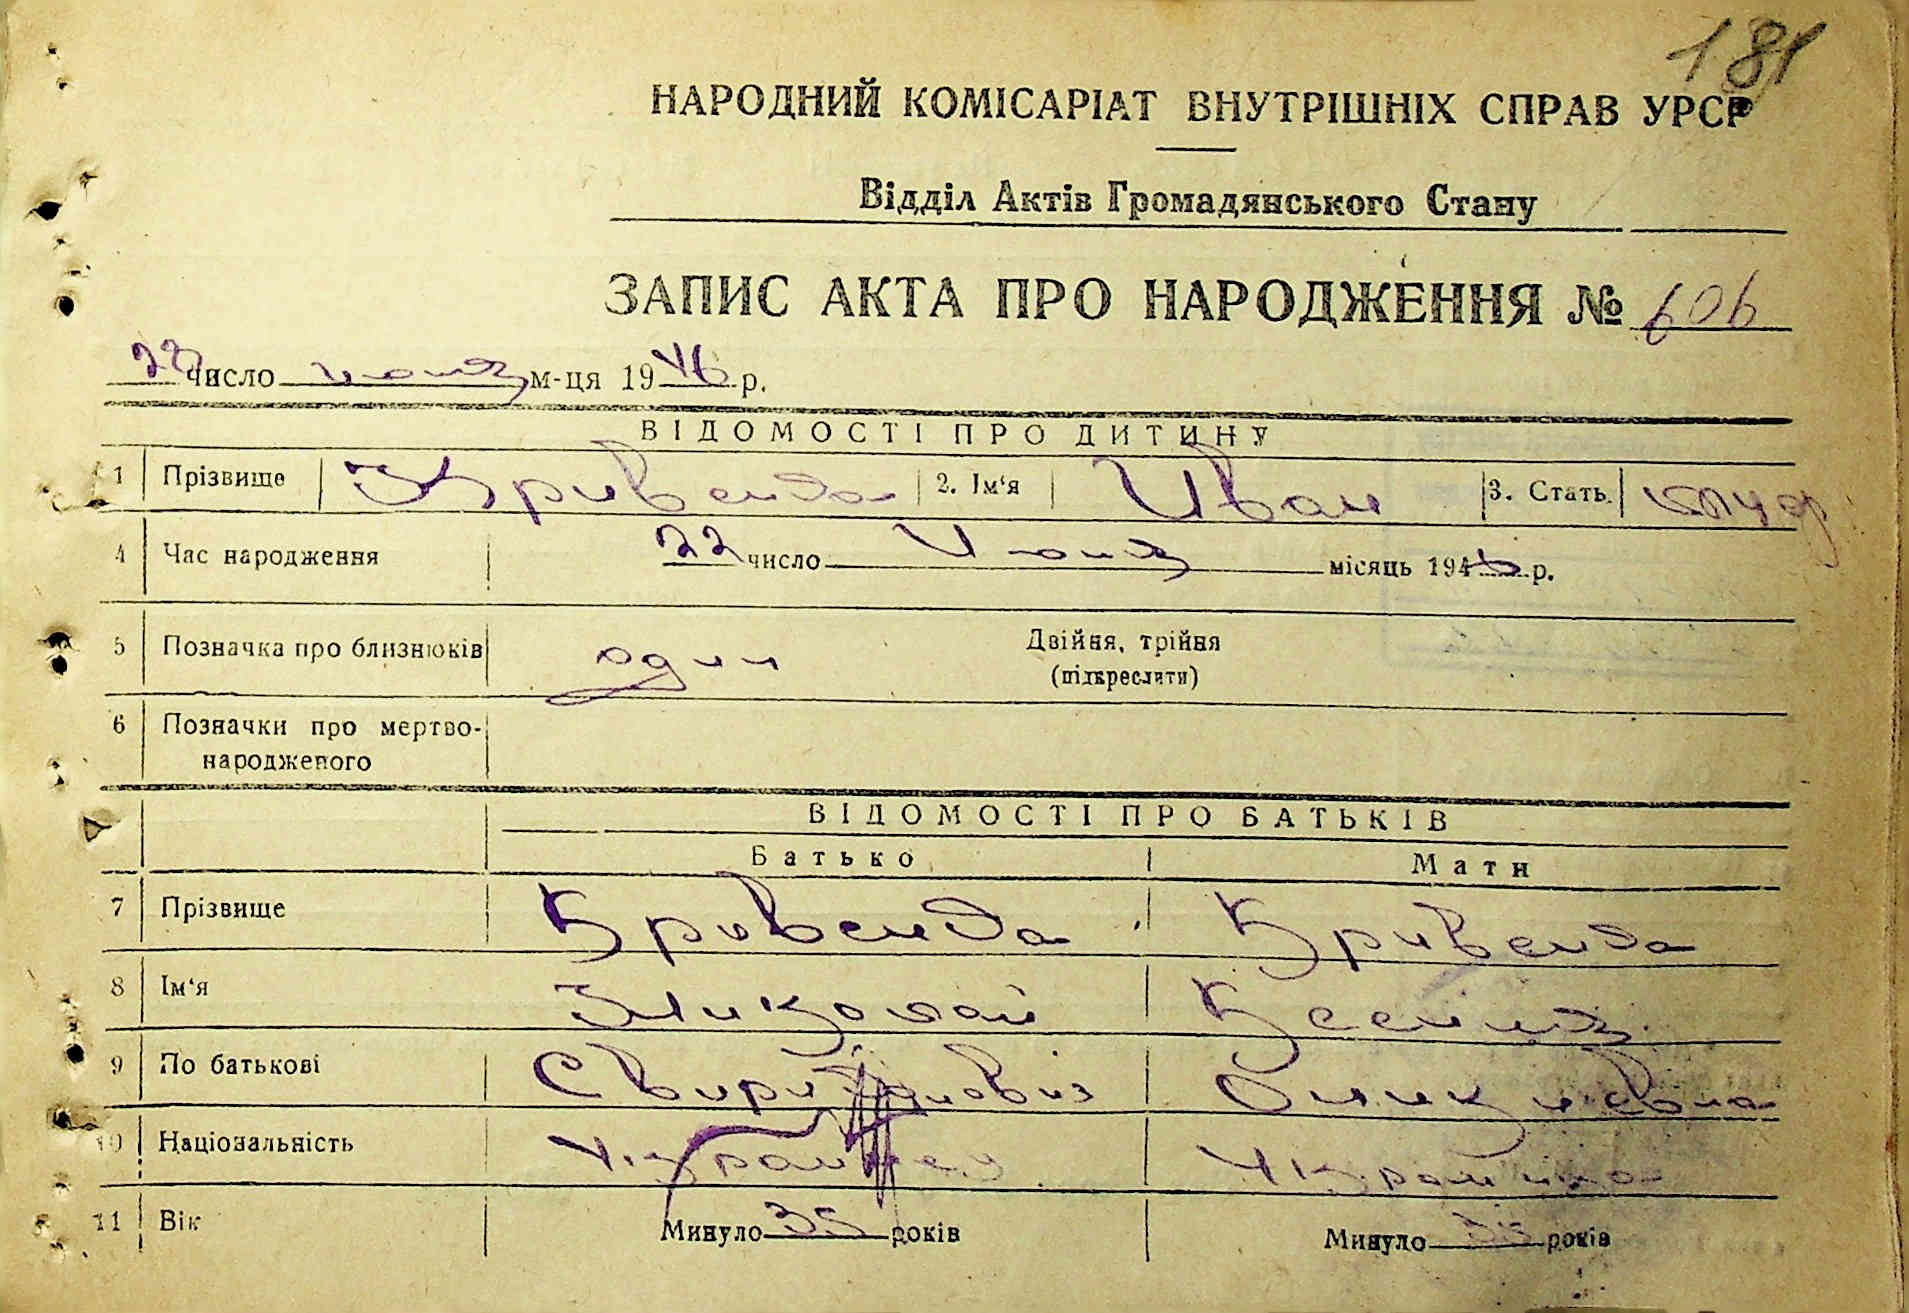 181
НАРОДНИЙ КОМІСАРІАТ ВНУТРІШНІХ СПРАВ УРСР
Відділ Актів Громадянського Стану
ЗАПИС АКТА ПРО НАРОДЖЕННЯ № 606
число м-ця 1946 р.
ВІДОМОСТІ ПРО ДИТИНУ
1 Прізвище Кривенда 2. Ім'я Иван 3. Стать
4 Час народження 22 число Июня місяць 1946 р.
5 Позначка про близнюків один Двійня, трійня
(підкреслити)
6 Позначки про мертво-
народженого
ВІДОМОСТІ ПРО БАТЬКІВ
Батько Мати
7 Прізвище Кривенда Кривенда
8 Ім'я Николай Ксения
9 По батькові Свиридович
10 Національність Украинец Украинка
11 Вік Минуло 35 років Минуло років